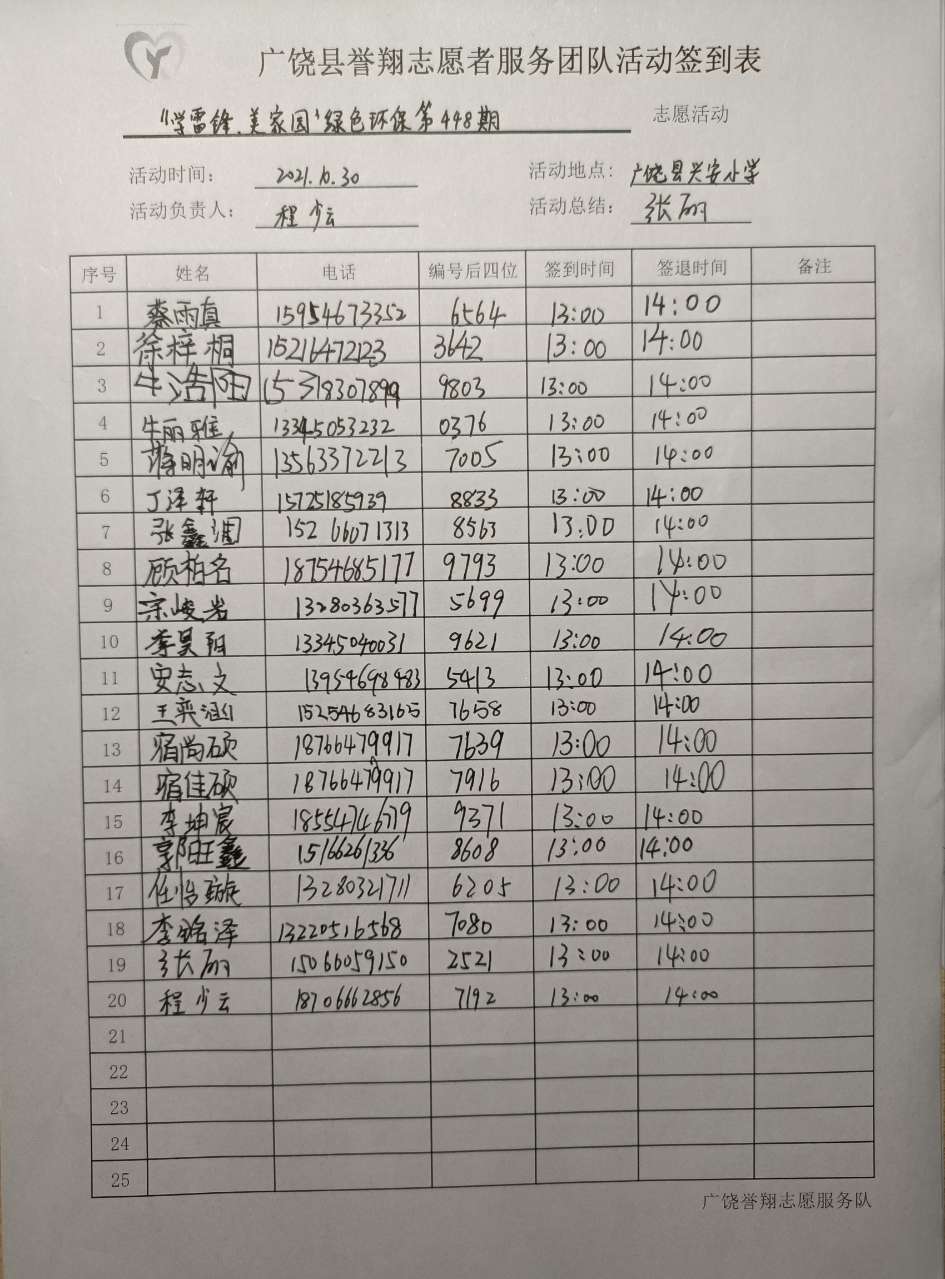 广饶县誉翔志愿者服务团队活动签到表
“学雷锋.美家园‘绿色环保第448期 志愿活动
活动时间： 2021.10.30 活动地点：广饶县兴安小学
活动负责人： 程少云 活动总结： 张丽
序号 姓名 电话 编号后四位 签到时间 签退时间 备注
1 蔡雨真 15954673352 6564 13:00 14:00
2 徐梓桐 15216472123 3642 13:00 14:00
3 牛浩阳 15318307899 9803 13:00 14:00
4 牛丽雅 13345053232 0376 13:00 14:00
5 蒋明谕 13563372213 7005 13:00 14:00
6 丁泽轩 15725185939 8833 13:00 14:00
7 张鑫 15266071313 8563 13:00 14:00
8 顾柏名 18754685177 9793 13:00 14:00
9 宗峻岩 13280363577 5699 13:00 14:00
10 李昊阳 13345040031 9621 13:00 14:00
11 安志文 13954698483 5413 13:00 14:00
12 王奕涵 15254683165 7658 13:00 14:00
13 宿尚硕 18766479917 7639 13:00 14:00
14 宿佳硕 18766479917 7916 13:00 14:00
15 李坤宸 18554746779 9371 13:00 14:00
16 郭旺鑫 15166261336 8608 13:00 14:00
17 任怡璇 13280321711 6205 13:00 14:00
18 李铭泽 13220516568 7080 13:00 14:00
19 张丽 15066059150 2521 13:00 14:00
20 程少云 18706662856 7192 13:00 14:00
21
22
23
24
25
广饶誉翔志愿服务队